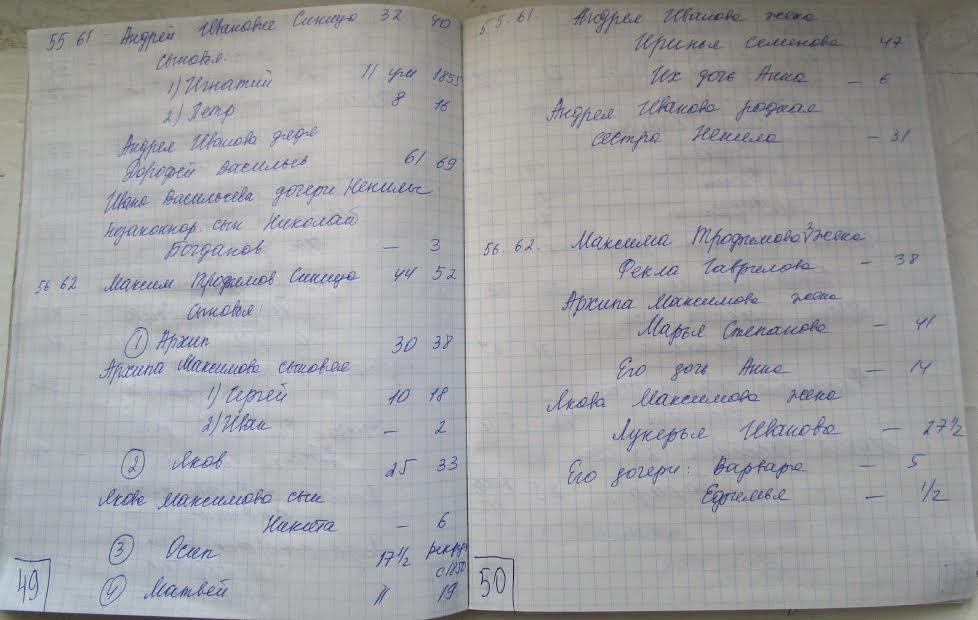 55 61 Андрей Ивановъ Синица 32 40
сыновья:
1) Игнатий 11 ум 1855
2) Петр 8 16
Андрея Иванова дядя
Дорофей Васильев 61 69
Ивана Васильева дочери Ненилы
незаконнор. сын Николай
Богданов — 3
56 62 Максим Трофимов Синица 44 52
сыновья:
1 Архип 30 38
Архипа Максимова сыновья
1) Сергей 10 18
2) Иван — 2
2 Яков 25 33
Якова Максимова сын
Никита — 6
3 Осип 17 1/2 рекрут
с 1850
4 Матвей 11 19
49
55. 61. Андрея Иванова жена
Иринья Семенова 47
Их дочь Анна — 6
Андрея Иванова родная
сестра Ненила — 31
56. 62. Максима Трофимова 3 жена
Фекла Гаврилова — 38
Архипа Максимова жена
Марья Степанова — 41
Его дочь Анна — 14
Якова Максимова жена
Лукерья Иванова — 27 1/2
Его дочери: Варвара — 5
Ефремья — 1/2
50